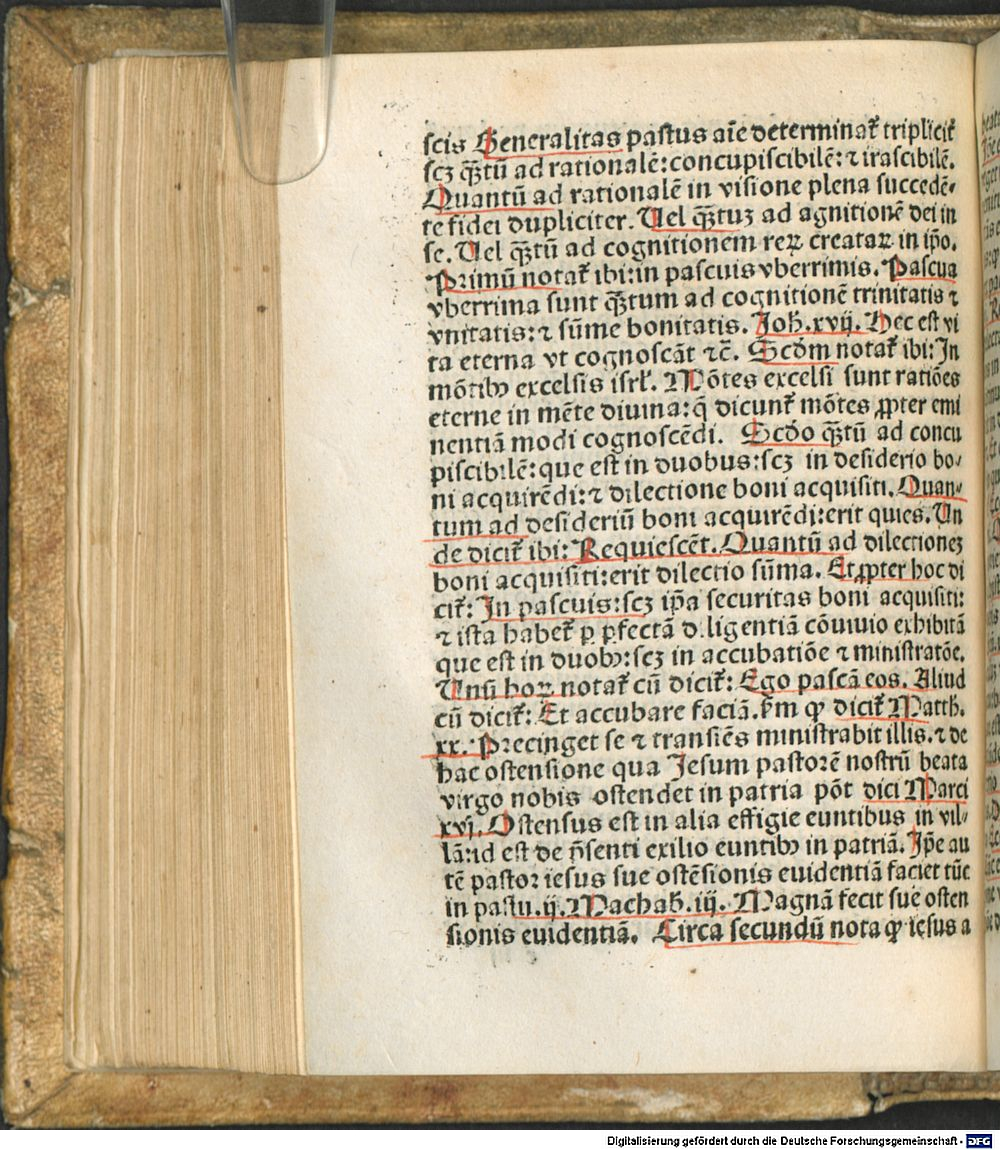 scis Generalitas pastus aīe determinat᷑ triplicit᷑
scꝫ qꝫ̄tū ad rationalē: concupiscibilē: ⁊ irascibilē.
Quantū ad rationalē in visione plena succedē-
te fidei dupliciter. Uel qꝫ̄tuꝫ ad agnitionē dei in
se. Uel qꝫ̄tū ad cognitionem reꝝ creataꝝ in ip̄o.
Primū notat᷑ ibi: in pascuis vberrimis. Pascua
vberrima sunt qꝫ̄tum ad cognitionē trinitatis ⁊
vnitatis: ⁊ sūme bonitatis. Joh̄. xvij. Hec est vi
ta eterna vt cognoscāt ⁊c̄. Scd̄m notat᷑ ibi: In
mōtibꝰ excelsis isrl̄. Mōtes excelsi sunt ratiōes
eterne in mēte diuina: q̄ dicunt᷑ mōtes ꝓpter emi
nentiā modi cognoscēdi. Scd̄o qꝫ̄tū ad concu
piscibilē: que est in duobus: scꝫ in desiderio bo-
ni acquirēdi: ⁊ dilectione boni acquisiti. Quan-
tum ad desideriū boni acquirēdi: erit quies. Un
de dicit᷑ ibi: Requiescēt. Quantū ad dilectioneꝫ
boni acquisiti: erit dilectio sūma. Et ꝓpter hoc di
cit᷑: In pascuis: scꝫ ip̄a securitas boni acquisiti:
⁊ ista habet᷑ ꝑ ꝑfectā d ligentiā cōuiuio exhibitā
que est in duobꝰ: scꝫ in accubatiōe ⁊ ministratōe.
Unū hoꝝ notat᷑ cū dicit᷑: Ego pascā eos. Aliud
cū dicit᷑: Et accubare faciā. k̄m ꝙ dicit᷑ Matth̄.
xx. Precinget se ⁊ transiēs ministrabit illis. ⁊ de
hac ostensione qua Jesum pastorē nostrū beata
virgo nobis ostendet in patria pōt dici Marci
xvj. Ostensus est in alia effigie euntibus in vil-
lā: id est de p̄senti exilio euntibꝰ in patriā. Ip̄e au
tē pastor iesus sue ostēsionis euidentiā faciet tūc
in pastu. ij. Machab̄. iij. Magnā fecit sue osten
sionis euidentiā. Circa secundū nota ꝙ iesus a
Digitalisierung gefördert durch die Deutsche Forschungsgemeinschaft - DFG